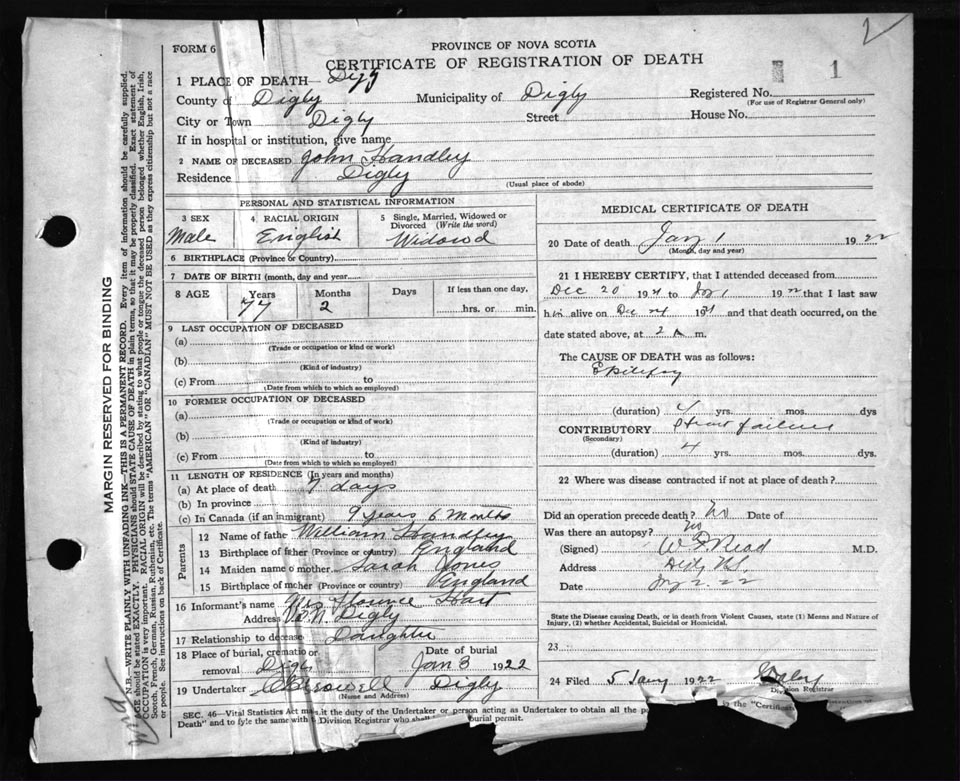 2
FORM 6
PROVINCE OF NOVA SCOTIA
CERTIFICATE OF REGISTRATION OF DEATH
1
1 PLACE OF DEATH—
County of Digby Municipality of Digby Registered No.
(For use of Registrar General only)
City or Town Digby Street House No.
If in hospital or institution, give name
2 NAME OF DECEASED John Handley
Residence Digby
(Usual place of abode)
PERSONAL AND STATISTICAL INFORMATION
3 SEX Male
4 RACIAL ORIGIN English
5 Single, Married, Widowed or Divorced (Write the word) Widowd
6 BIRTHPLACE (Province or Country)
7 DATE OF BIRTH (month, day and year)
8 AGE Years 77 Months 2 Days If less than one day, hrs. or min.
9 LAST OCCUPATION OF DECEASED
(a)
(Trade or occupation or kind or work)
(b)
(Kind of industry)
(c) From to
(Date from which to which so employed)
10 FORMER OCCUPATION OF DECEASED
(a)
(Trade or occupation or kind of work)
(b)
(Kind of industry)
(c) From to
(Date from which to which so employed)
11 LENGTH OF RESIDENCE (In years and months)
(a) At place of death 7 days
(b) In province
(c) In Canada (if an immigrant) 9 years 6 months
Parents
12 Name of fathe William Handley
13 Birthplace of father (Province or country) England
14 Maiden name o mother Sarah Jones
15 Birthplace of mother (Province or country) England
16 Informant's name Mrs Florence Hart
Address Digby
17 Relationship to decease Daughter
18 Place of burial, crematio or removal Digby Date of burial Jan 3 1922
19 Undertaker Digby
(Name and Address)
MEDICAL CERTIFICATE OF DEATH
20 Date of death Jan 1 1922
(Month, day and year)
21 I HEREBY CERTIFY, that I attended deceased from
Dec 20 1921 to Jan 1 1922 that I last saw
him alive on Dec 24 1921 and that death occurred, on the
date stated above, at 2 A m.
The CAUSE OF DEATH was as follows:
Epilepsy
(duration) 4 yrs. mos. dys
CONTRIBUTORY Heart failure
(Secondary)
(duration) 4 yrs. mos. dys.
22 Where was disease contracted if not at place of death?
Did an operation precede death? No Date of
Was there an autopsy? no
(Signed) W F Read M.D.
Address Digby N.S.
Date Jany 2. 22
State the Disease causing Death, or in death from Violent Causes, state (1) Means and Nature of Injury, (2) whether Accidental, Suicidal or Homicidal.
23
24 Filed 5 Jany 1922
Division Registrar
SEC. 46—Vital Statistics Act ma it the duty of the Undertaker or person acting as Undertaker to obtain all the p
Death" and to fyle the same with Division Registrar who burial permit.
in the "Certificate
MARGIN RESERVED FOR BINDING
N.B.—WRITE PLAINLY WITH UNFADING INK—THIS IS A PERMANENT RECORD. Every item of information should be carefully supplied.
AGE should be stated EXACTLY. PHYSICIANS should STATE CAUSE OF DEATH in plain terms, so that it may be properly classified. Exact statement of
OCCUPATION is very important. RACIAL ORIGIN will be described by stating to what people or tongue the deceased person belonged whether English, Irish,
Scotch, French, German, Russian, Ruthenian, etc. The terms "AMERICAN" OR "CANADIAN" MUST NOT BE USED as they express citizenship but not a race
or people. See instructions on back of Certificate.